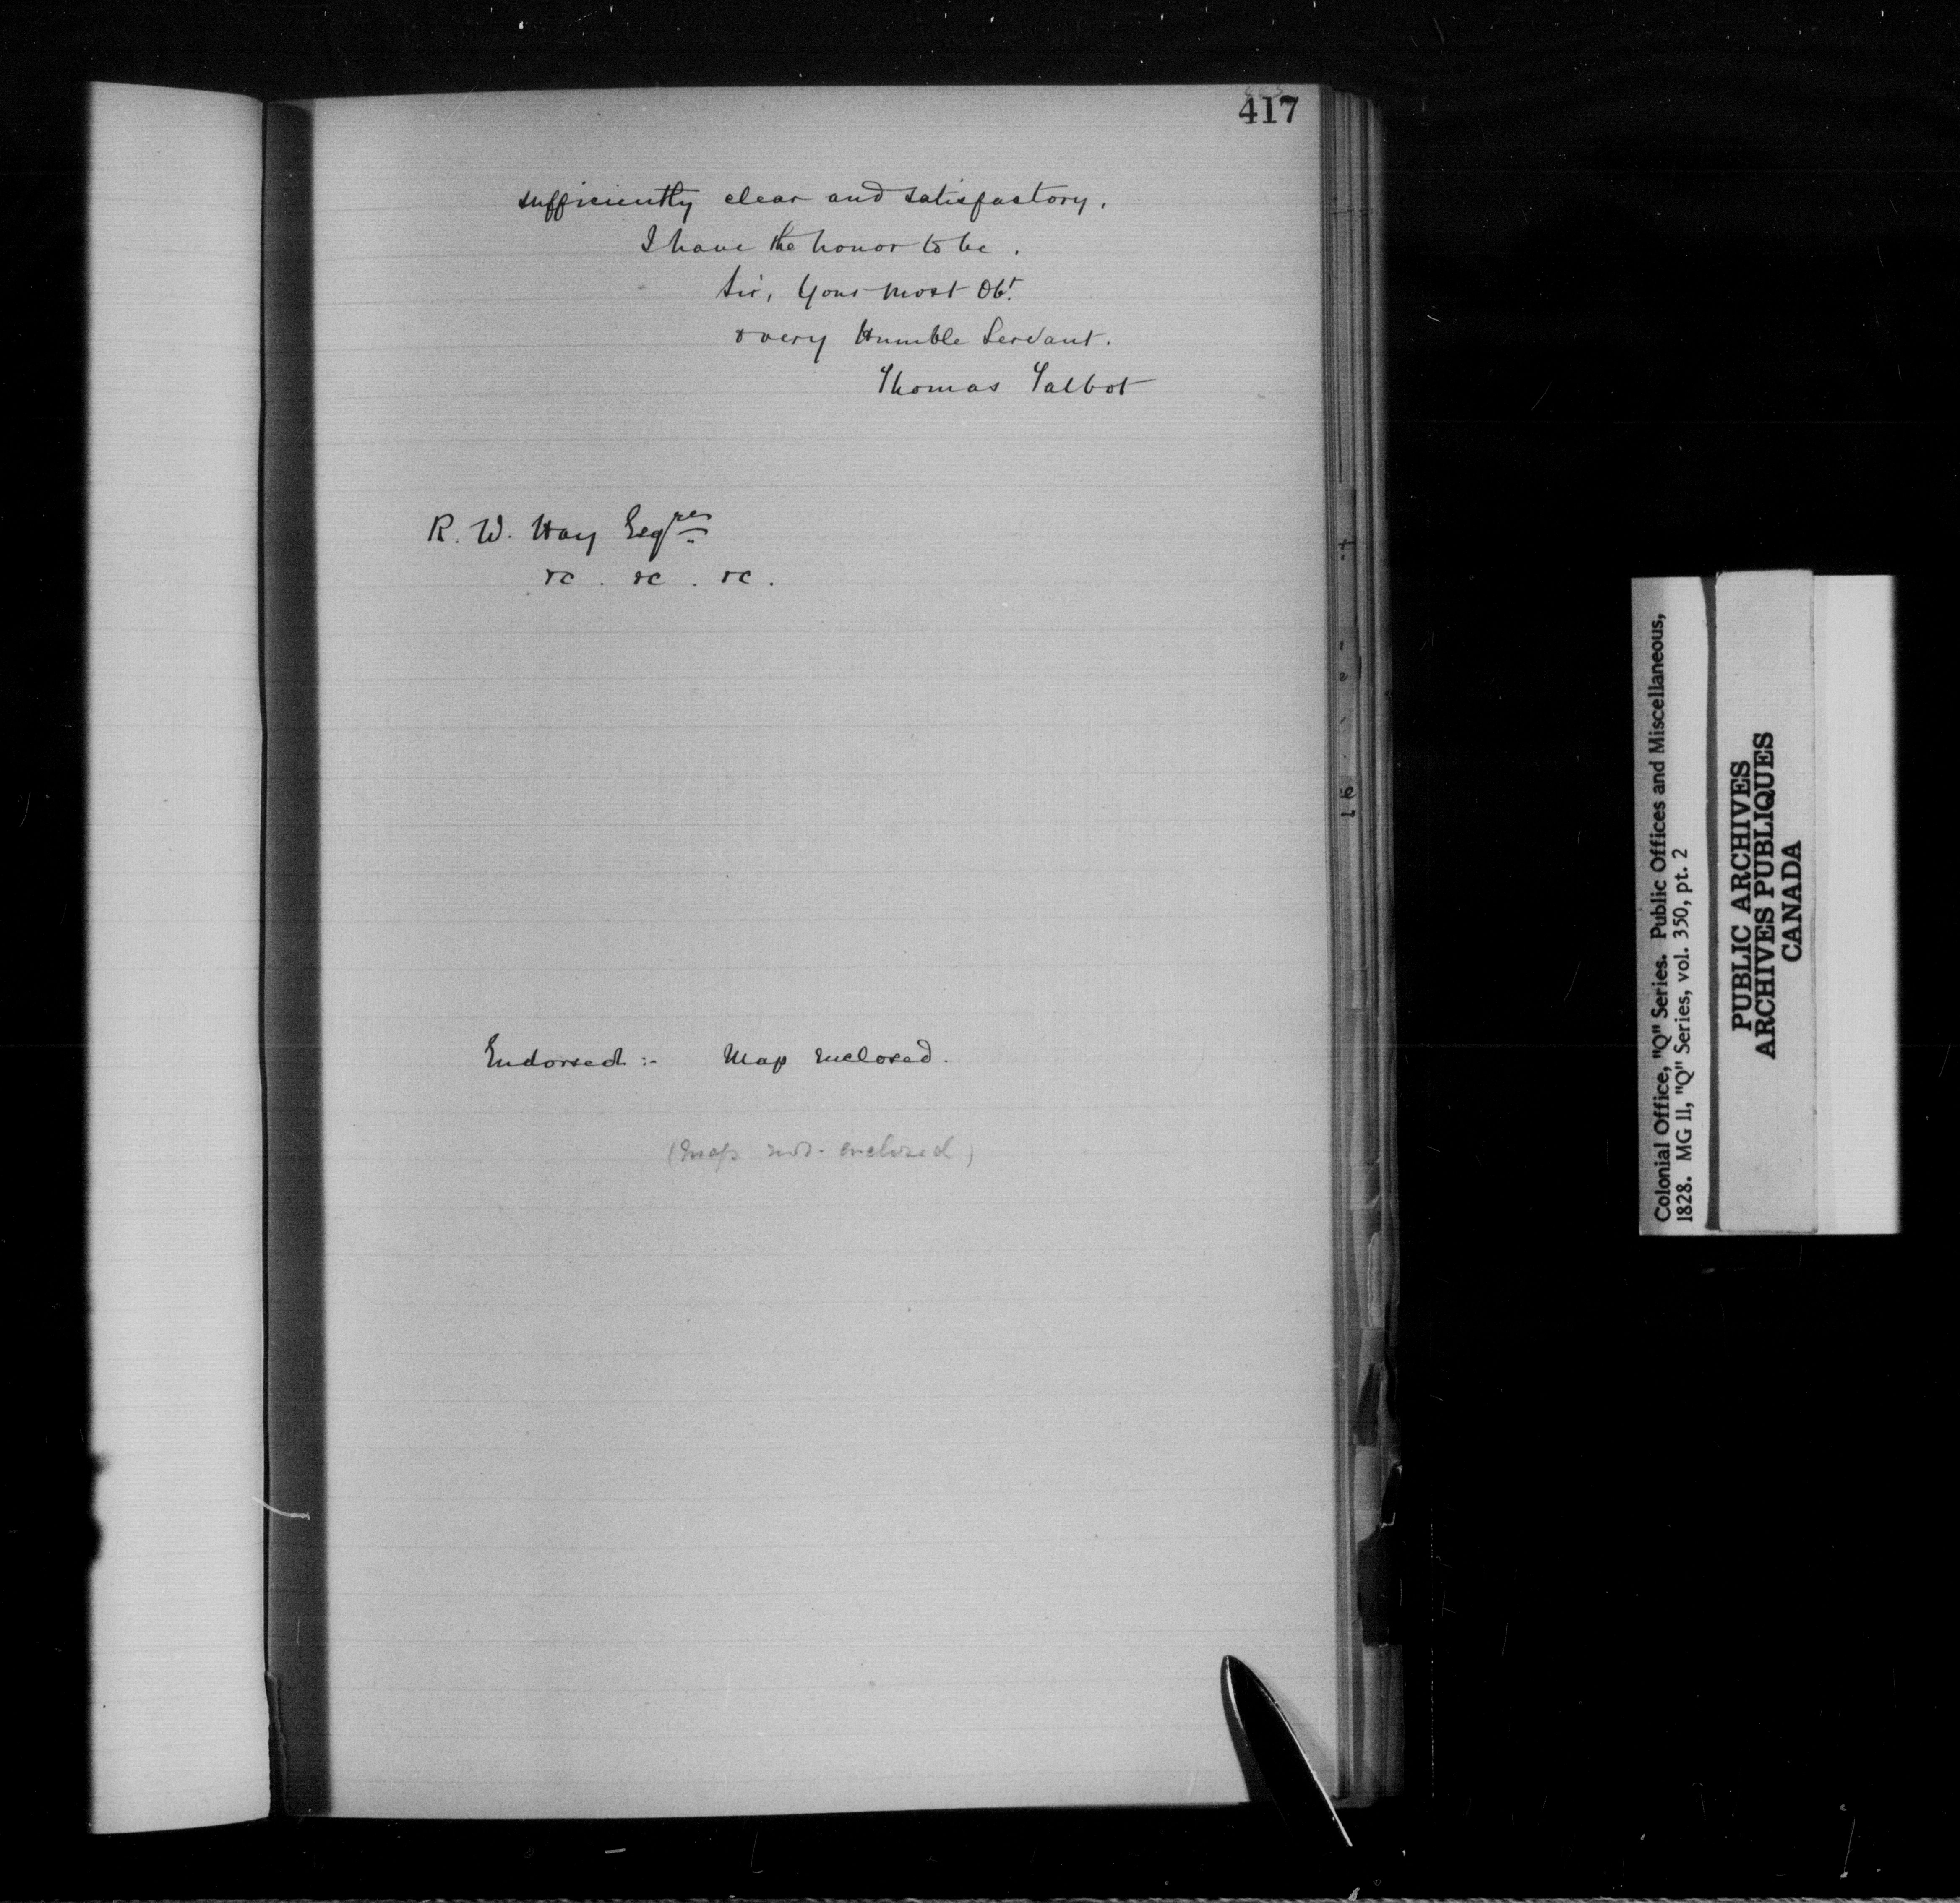 417
sufficiently clear and satisfactory.
I have the honor to be.
Sir, Your most Obt.
& very Humble Servant.
Thomas Talbot
R. W. Hay Esqre
&c. &c. &c.
Endorsed :- Map enclosed.
(Map not enclosed)
Colonial Office, "Q" Series. Public Offices and Miscellaneous,
1828. MG 11, "Q" Series, vol. 350, pt. 2
PUBLIC ARCHIVES
ARCHIVES PUBLIQUES
CANADA